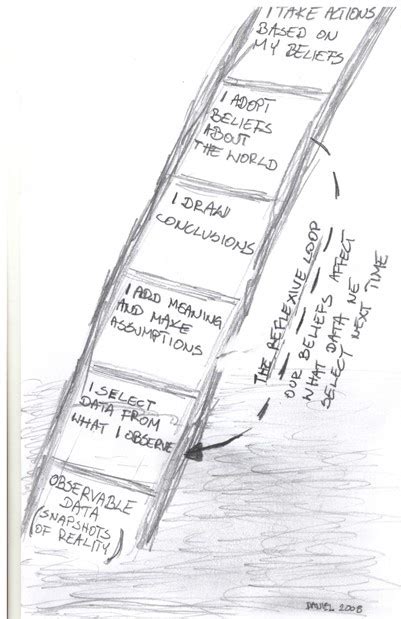 I TAKE ACTIONS
BASED ON
MY BELIEFS
I ADOPT
BELIEFS
ABOUT
THE WORLD
I DRAW
CONCLUSIONS
I ADD MEANING
AND MAKE
ASSUMPTIONS
I SELECT
DATA FROM
WHAT I OBSERVE
OBSERVABLE
DATA
(SNAPSHOTS
OF REALITY)
THE REFLEXIVE LOOP
OUR BELIEFS AFFECT
WHAT DATA WE
SELECT NEXT TIME
DANIEL 2008